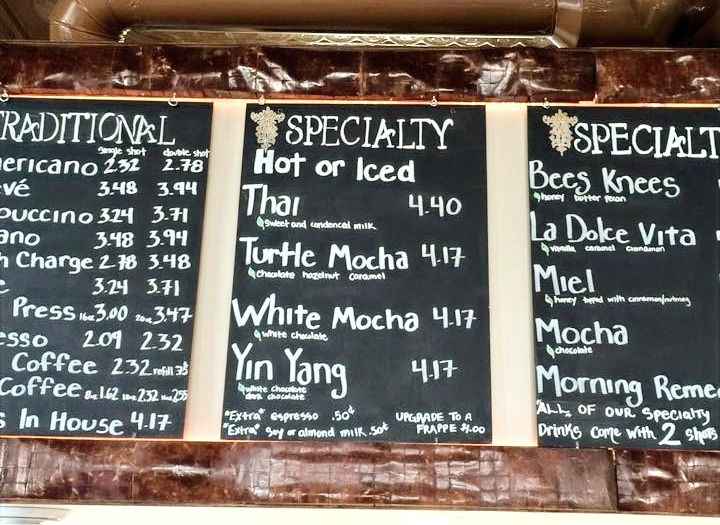 TRADITIONAL
single shot double shot
mericano 2.32 2.78
vé 3.48 3.94
puccino 3.24 3.71
ano 3.48 3.94
h Charge 2.78 3.48
e 3.24 3.71
Press 3.00 3.47
esso 2.09 2.32
Coffee 2.32 refill .75
Coffee 8oz 1.62 2.32 2.55
s In House 4.17
SPECIALTY
Hot or Iced
Thai 4.40
sweet and condenced milk
Turtle Mocha 4.17
chocolate hazelnut caramel
White Mocha 4.17
white chocolate
Yin Yang 4.17
white chocolate
dark chocolate
*Extra* espresso .50¢
*Extra* soy or almond milk .50¢
UPGRADE TO A
FRAPPE $1.00
SPECIALT
Bees Knees
honey butter pecan
La Dolce Vita
vanilla caramel cinnamon
Miel
honey topped with cinnamon/nutmeg
Mocha
chocolate
Morning Reme
*ALL OF OUR Specialty
Drinks come with 2 shots